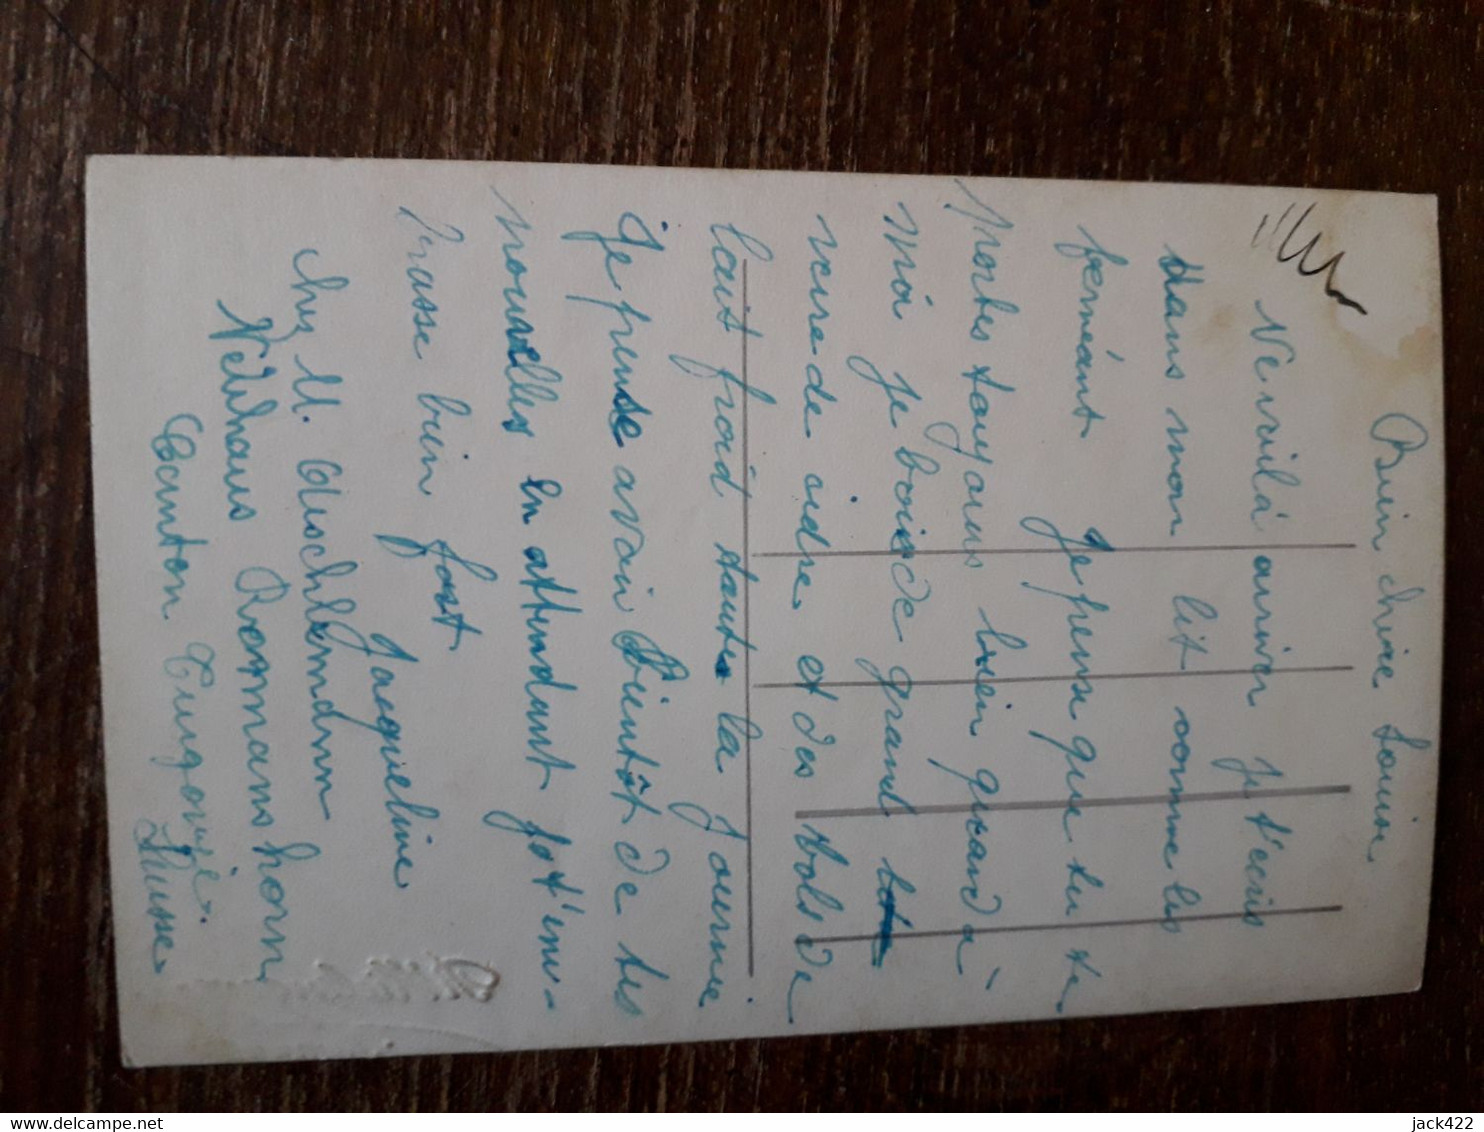 Bien chère Louise
Me voilà arriver je t'ecris
dans mon lit comme les
fenéant Je pense que tu te
portes toujours bien quand à
moi je bois de grand
verre de cidre et des bols de
lait froid toute la journé
Je pense avoir Bientôt de tes
nouvelles En attendant je t'em-
brasse bien fort
Jacqueline
chez M. Aeschlemann
Neuhaus Romanshorn
Canton Turgovie
Suisse
jack422